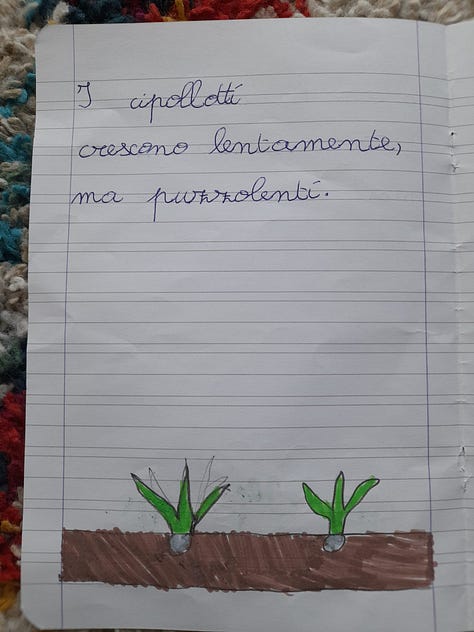 I cipollotti
crescono lentamente,
ma puzzolenti.